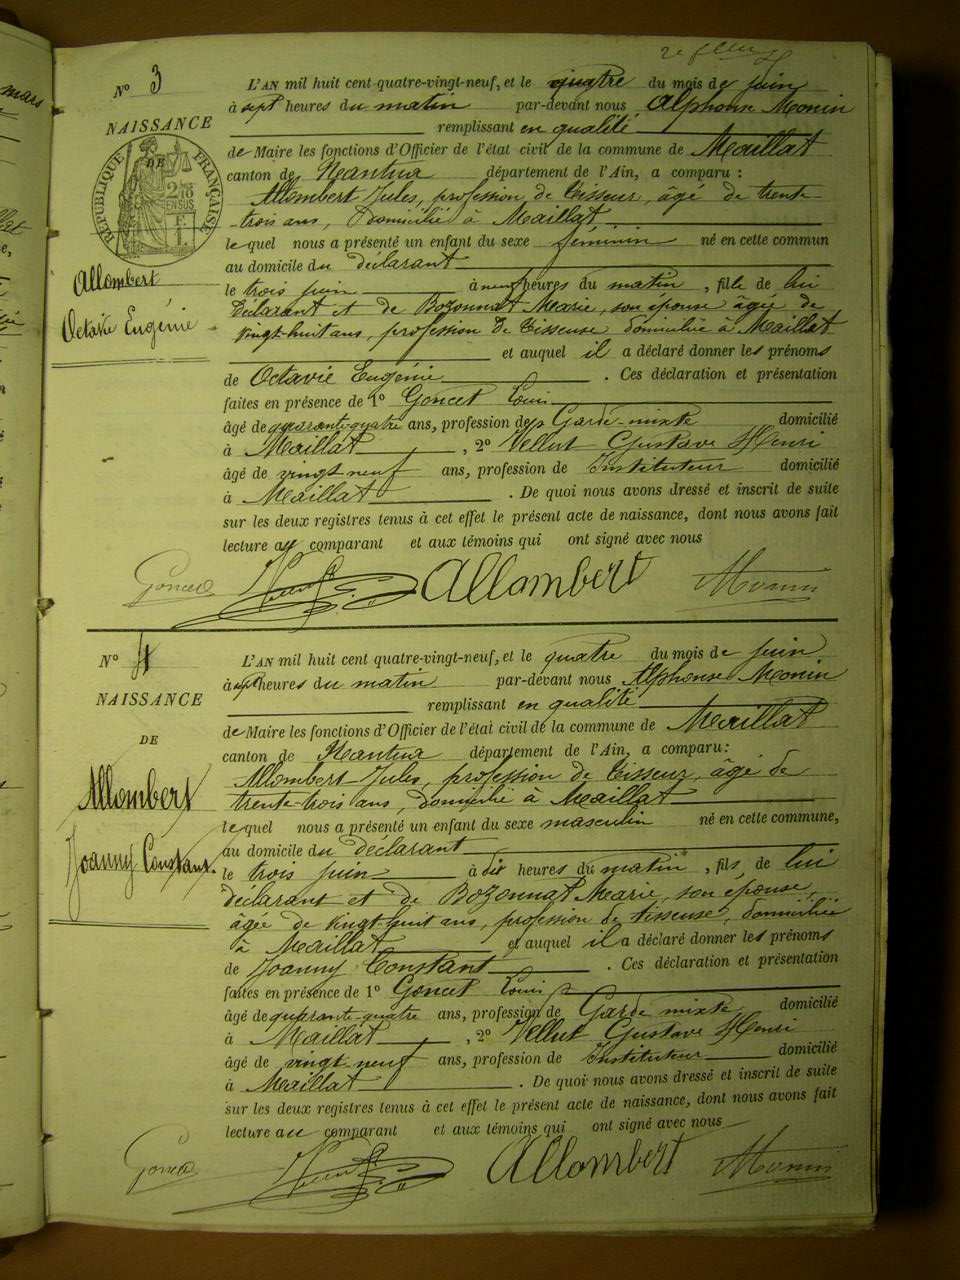 2e feuillet
mars
N° 3
NAISSANCE
DE
RÉPUBLIQUE FRANÇAISE
Allombert
Octavie Eugénie
L'AN mil huit cent-quatre-vingt-neuf, et le quatre du mois de juin
à sept heures du matin par-devant nous Alphonse Monin
remplissant en qualité
de Maire les fonctions d'Officier de l'état civil de la commune de Maillat
canton de Nantua département de l'Ain, a comparu :
Allombert Jules, profession de tisseur, âgé de trente-
-trois ans, domicilié à Maillat
le quel nous a présenté un enfant du sexe féminin né en cette commun
au domicile du déclarant
le trois juin à neuf heures du matin, fille de lui
déclarant et de Bozonnat Marie, son épouse âgée de
vingt-huit ans, profession de tisseuse domiciliée à Maillat
et auquel il a déclaré donner les prénoms
de Octavie Eugénie . Ces déclaration et présentation
faites en présence de 1° Goncet Louis
âgé de quarante-quatre ans, profession de Garde-mixte domicilié
à Maillat , 2° Vellut Gustave Henri
âgé de vingt neuf ans, profession de Instituteur domicilié
à Maillat . De quoi nous avons dressé et inscrit de suite
sur les deux registres tenus à cet effet le présent acte de naissance, dont nous avons fait
lecture au comparant et aux témoins qui ont signé avec nous
Goncet Allombert Monin
N° 4
NAISSANCE
DE
Allombert
Joanny Constant.
L'AN mil huit cent quatre-vingt-neuf, et le quatre du mois de juin
à sept heures du matin par-devant nous Alphonse Monin
remplissant en qualité
de Maire les fonctions d'Officier de l'état civil de la commune de Maillat
canton de Nantua département de l'Ain, a comparu :
Allombert Jules, profession de tisseur, âgé de
trente-trois ans, domicilié à Maillat
le quel nous a présenté un enfant du sexe masculin né en cette commune,
au domicile du déclarant
le trois juin à dix heures du matin, fils, de lui
déclarant et de Bozonnat Marie, son épouse,
âgée de vingt-huit ans, profession de tisseuse, domiciliée
à Maillat et auquel il a déclaré donner les prénoms
de Joanny Constant . Ces déclaration et présentation
faites en présence de 1° Goncet Louis
âgé de quarante-quatre ans, profession de Garde mixte domicilié
à Maillat , 2° Vellut Gustave Henri
âgé de vingt neuf ans, profession de Instituteur domicilié
à Maillat . De quoi nous avons dressé et inscrit de suite
sur les deux registres tenus à cet effet le présent acte de naissance, dont nous avons fait
lecture au comparant et aux témoins qui ont signé avec nous
Goncet Allombert Monin